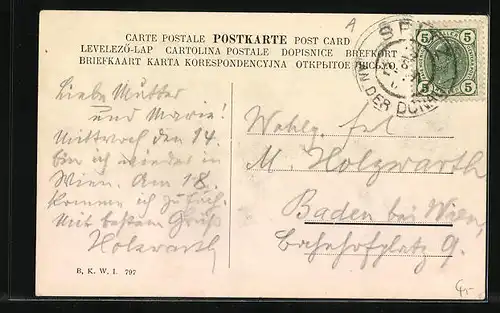 A
CARTE POSTALE POSTKARTE POST CARD
LEVELEZŐ-LAP CARTOLINA POSTALE DOPISNICE BREFKORT
BRIEFKAART KARTA KORESPONDENCYJNA ОТКРЫТОЕ ПИСЬМО
AN DER DONAU
5 5
5 5
Liebe Mutter
und Marie!
Mittwoch den 14.
bin ich wieder in
Wien. Am 18.
komme ich zu Euch.
Mit bestem Gruß
Holzwarth
Wohlg. Frl
M. Holzwarth
Baden bei Wien,
Bahnhofplatz 9.
B. K. W. I. 797